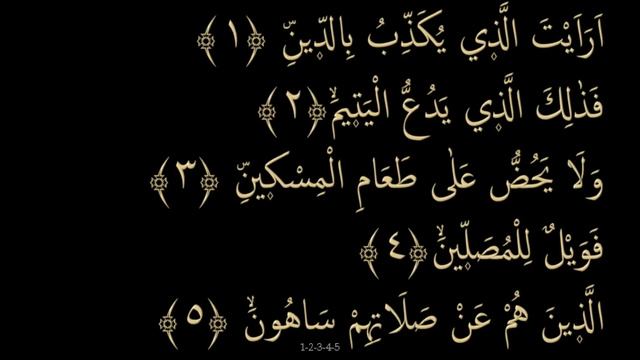 اَرَاَيْتَ الَّذٖي يُكَذِّبُ بِالدّٖينِّ ﴿١﴾
فَذٰلِكَ الَّذٖي يَدُعُّ الْيَتٖيمَۙ ﴿٢﴾
وَلَا يَحُضُّ عَلٰى طَعَامِ الْمِسْكٖينِّ ﴿٣﴾
فَوَيْلٌ لِلْمُصَلّٖينَۙ ﴿٤﴾
الَّذٖينَ هُمْ عَنْ صَلَاتِهِمْ سَاهُونَۙ ﴿٥﴾
1-2-3-4-5